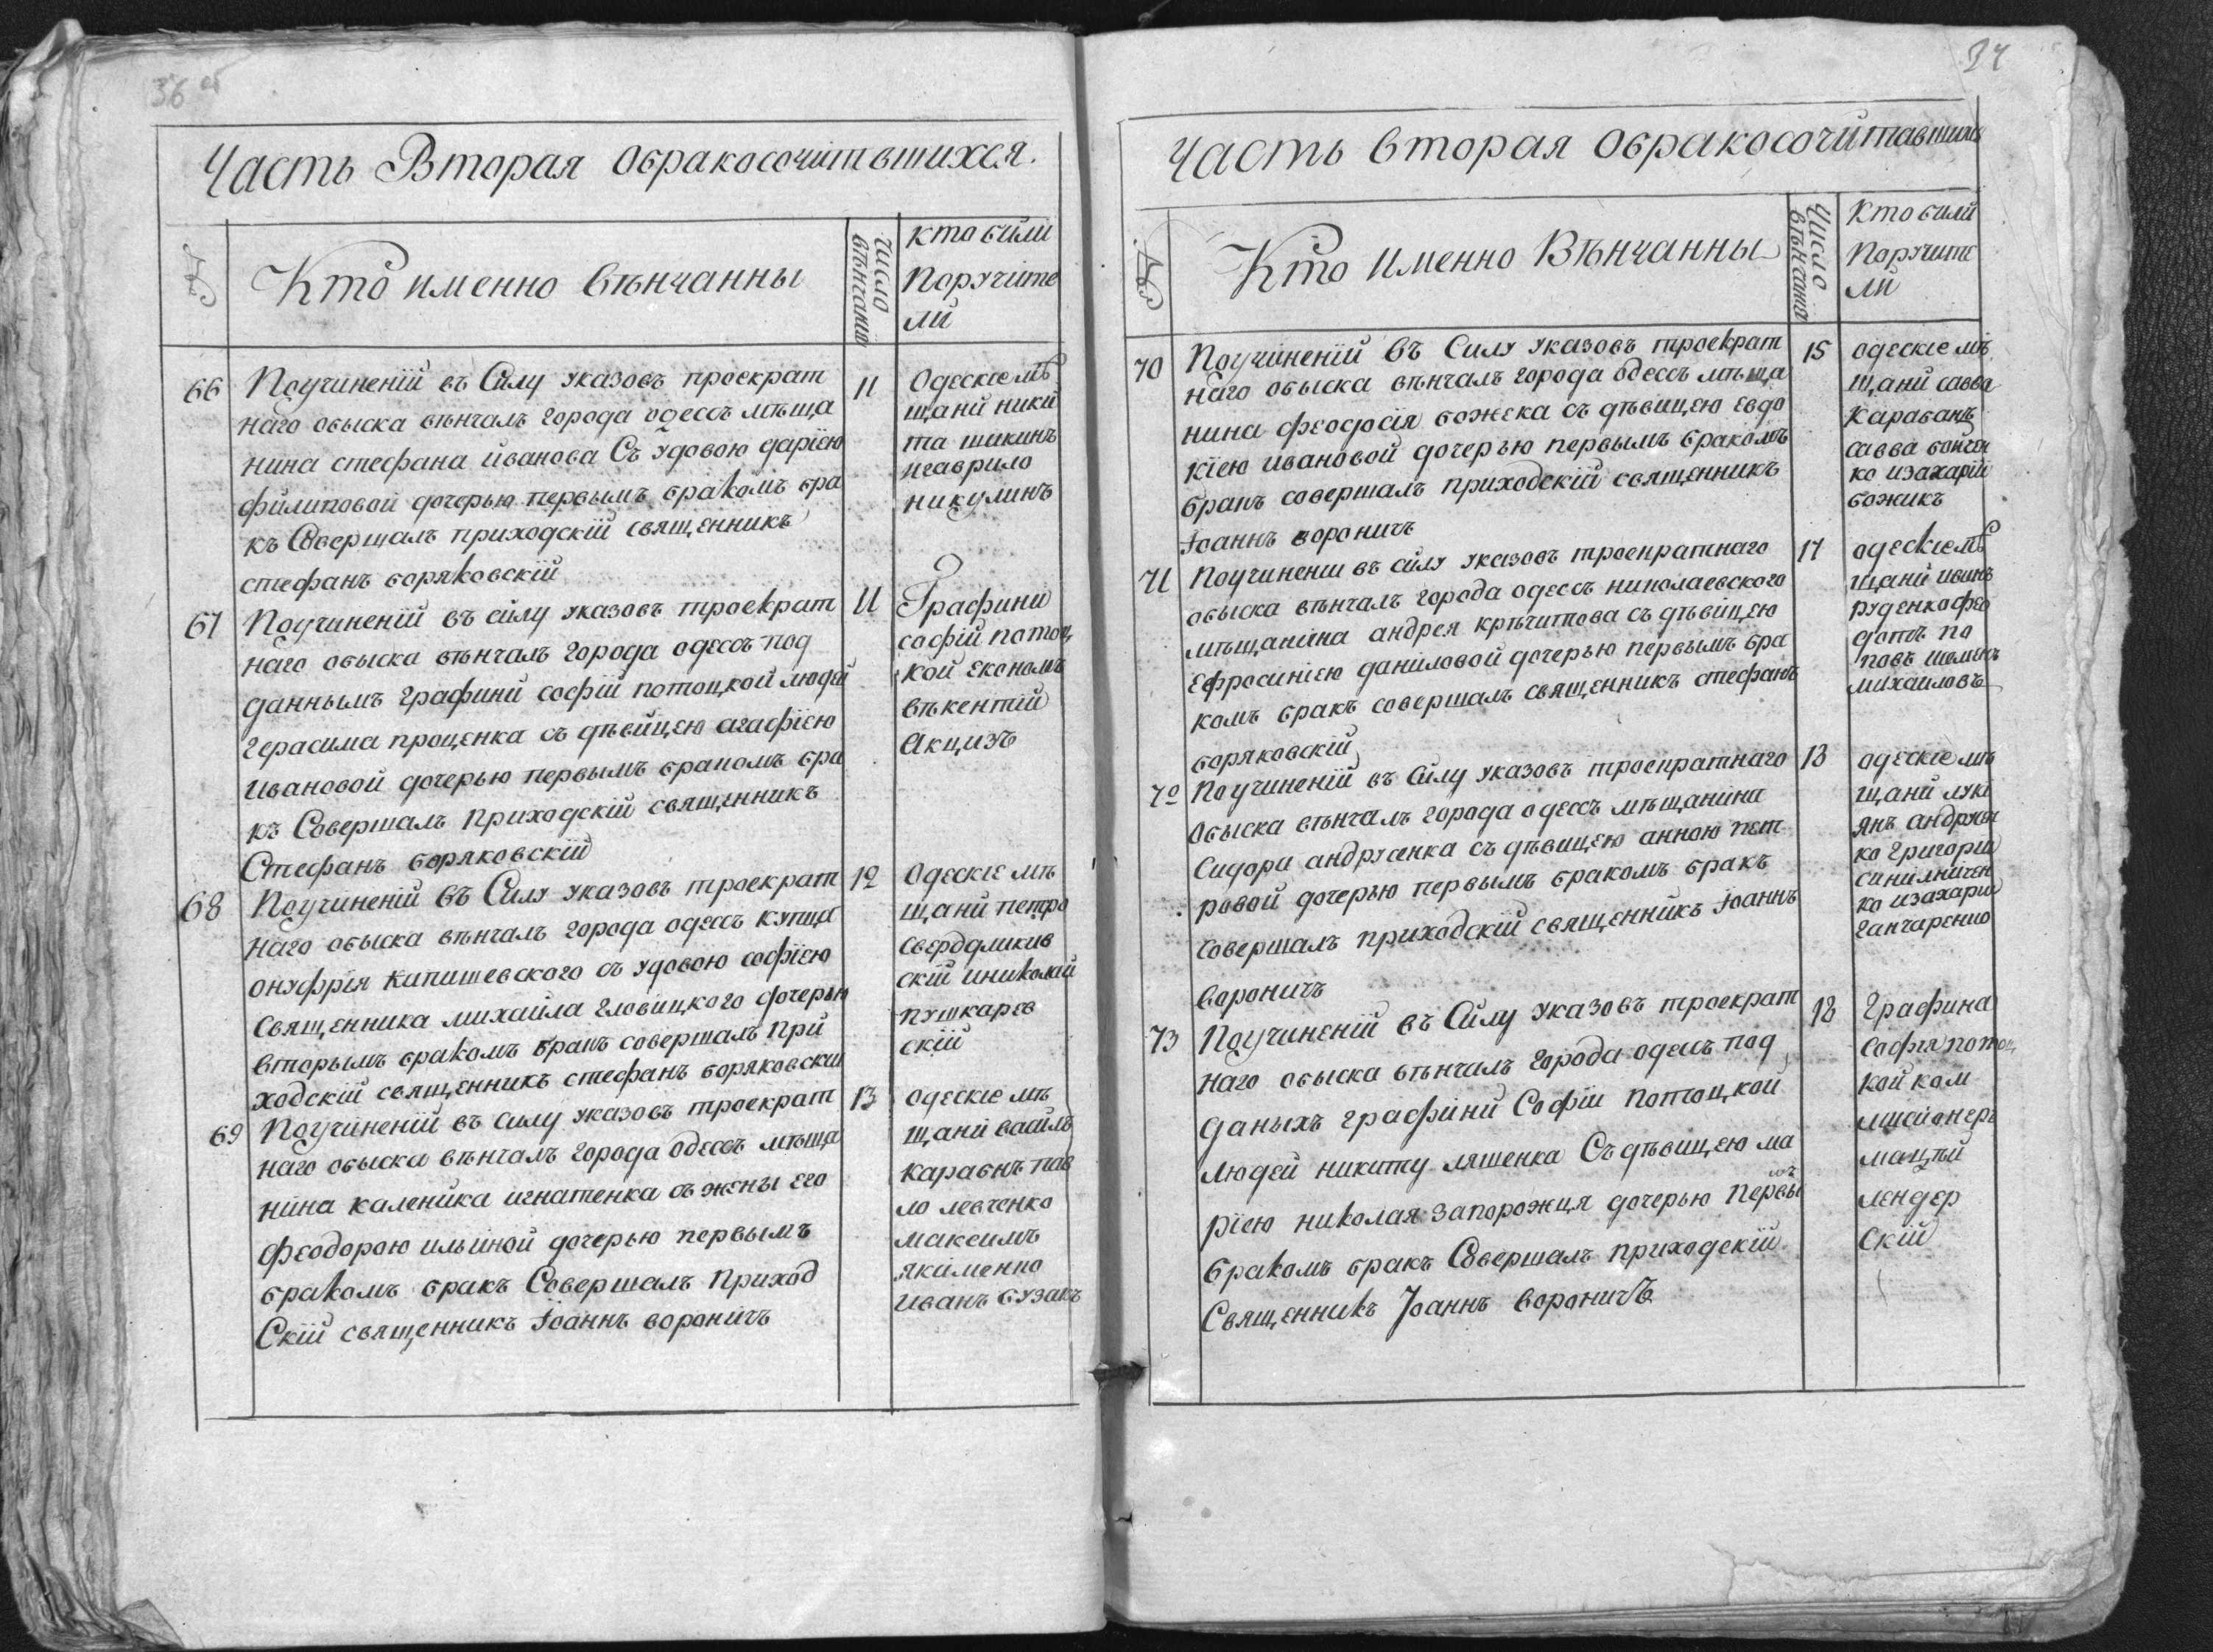 36 об
Часть Вторая обракосочитвшихся.
№
Кто именно вѣнчанны
число вѣнчанію
кто были
Поручите
ли
66
Поучиненїй въ Силу указовъ троекрат
наго обыска вѣнчалъ города одессъ мѣща
нина стефана иванова Съ удовою дарїею
филиповой дочерью первымъ бракомъ бра
къ Совершалъ приходскїй священникъ
стефанъ боряковскїй
11
Одескїе мѣ
щани ники
та шикинъ
игаврило
никулинъ
67
Поучиненїй въ силу указовъ троекрат
наго обыска вѣнчалъ города одессъ под
данньимъ графини софїй потоцкой людей
герасима проценка съ дѣвицею агафїею
Ивановой дочерью первымъ браномъ бра
къ Совершалъ приходскїй священникъ
Стефанъ боряковскїй
11
Графини
софїй потоц
кой економъ
вѣкентїй
Акцизъ
68
Поучиненїй въ Силу указовъ троекрат
наго обыска вѣнчалъ города одессъ купца
онуфрїя кипишевского съ удовою софїею
Священника михаила гловицкого дочерью
вторымъ бракомъ бракъ совершалъ при
ходскїй священникъ стефанъ боряковскїй
12
Одескїе мѣ
щани петро
свердликив
скїй иниколай
пушкарев
скїй
69
Поучиненїй въ силу указовъ троекрат
наго обыска вѣнчалъ города одессъ мѣща
нина каленика игнатенка съ жены его
феодорою ильиной дочерью первымъ
бракомъ бракъ Совершалъ Приход
Скїй священникъ Іоаннъ вороничъ
13
одескїе мѣ
щани васйль
каравнъ пав
ло левченко
максимъ
якименно
Иванъ бузакъ
37
Часть вторая обракосочитавшихъ
№
Кто именно Вѣнчанны
Число вѣнчанія
Кто были
Поручите
ли
70
Поучиненїй въ Силу указовъ троекрат
наго обыска вѣнчалъ города одессъ мѣща
нина феодосїя божека съ дѣвицею евдо
кїею ивановой дочерью первымъ бракомъ
бракъ совершалъ приходскїй священникъ
Іоаннъ вороничъ
15
одескїе мѣ
щани савва
Карабанъ
савва бойчен
ко изахарїй
божикъ
71
Поучиненїи въ силу указовъ троекратнаго
обыска вѣнчалъ города одессъ николаевского
мѣщанина андрея крѣчитова съ дѣвицею
Ефросинїею даниловой дочерью первымъ бра
комъ бракъ совершалъ священникъ стефанъ
боряковскїй
17
одескїе мѣ
щани иванъ
руденкофео
дотъ по
повъ
михайловъ
72
Поучиненїй въ Силу указовъ троекратнаго
обыска вѣнчалъ города одессъ мѣщанина
Сидора андрусенка съ дѣвицею анною пет
ровой дочерью первымъ бракомъ бракъ
совершалъ приходскїй священникъ Іоаннъ
вороничъ
13
одескїе мѣ
щани луки
янъ андрусен
ко григорїй
синилничен
ко изахарїй
ганчаренно
73
Поучиненїй въ Силу указовъ троекрат
наго обыска вѣнчалъ города одессъ под
даныхъ графини Софїи Потоцкой
людей никиту ляшенка Съ дѣвицею ма
рїею николая запорожця дочерью первы
мъ
бракомъ бракъ Совершалъ приходскїй
Священникъ Іоаннъ вороничъ
18
Графина
Софія потоц
кой ком
мисионеръ
мацѣй
лендер
Скїй